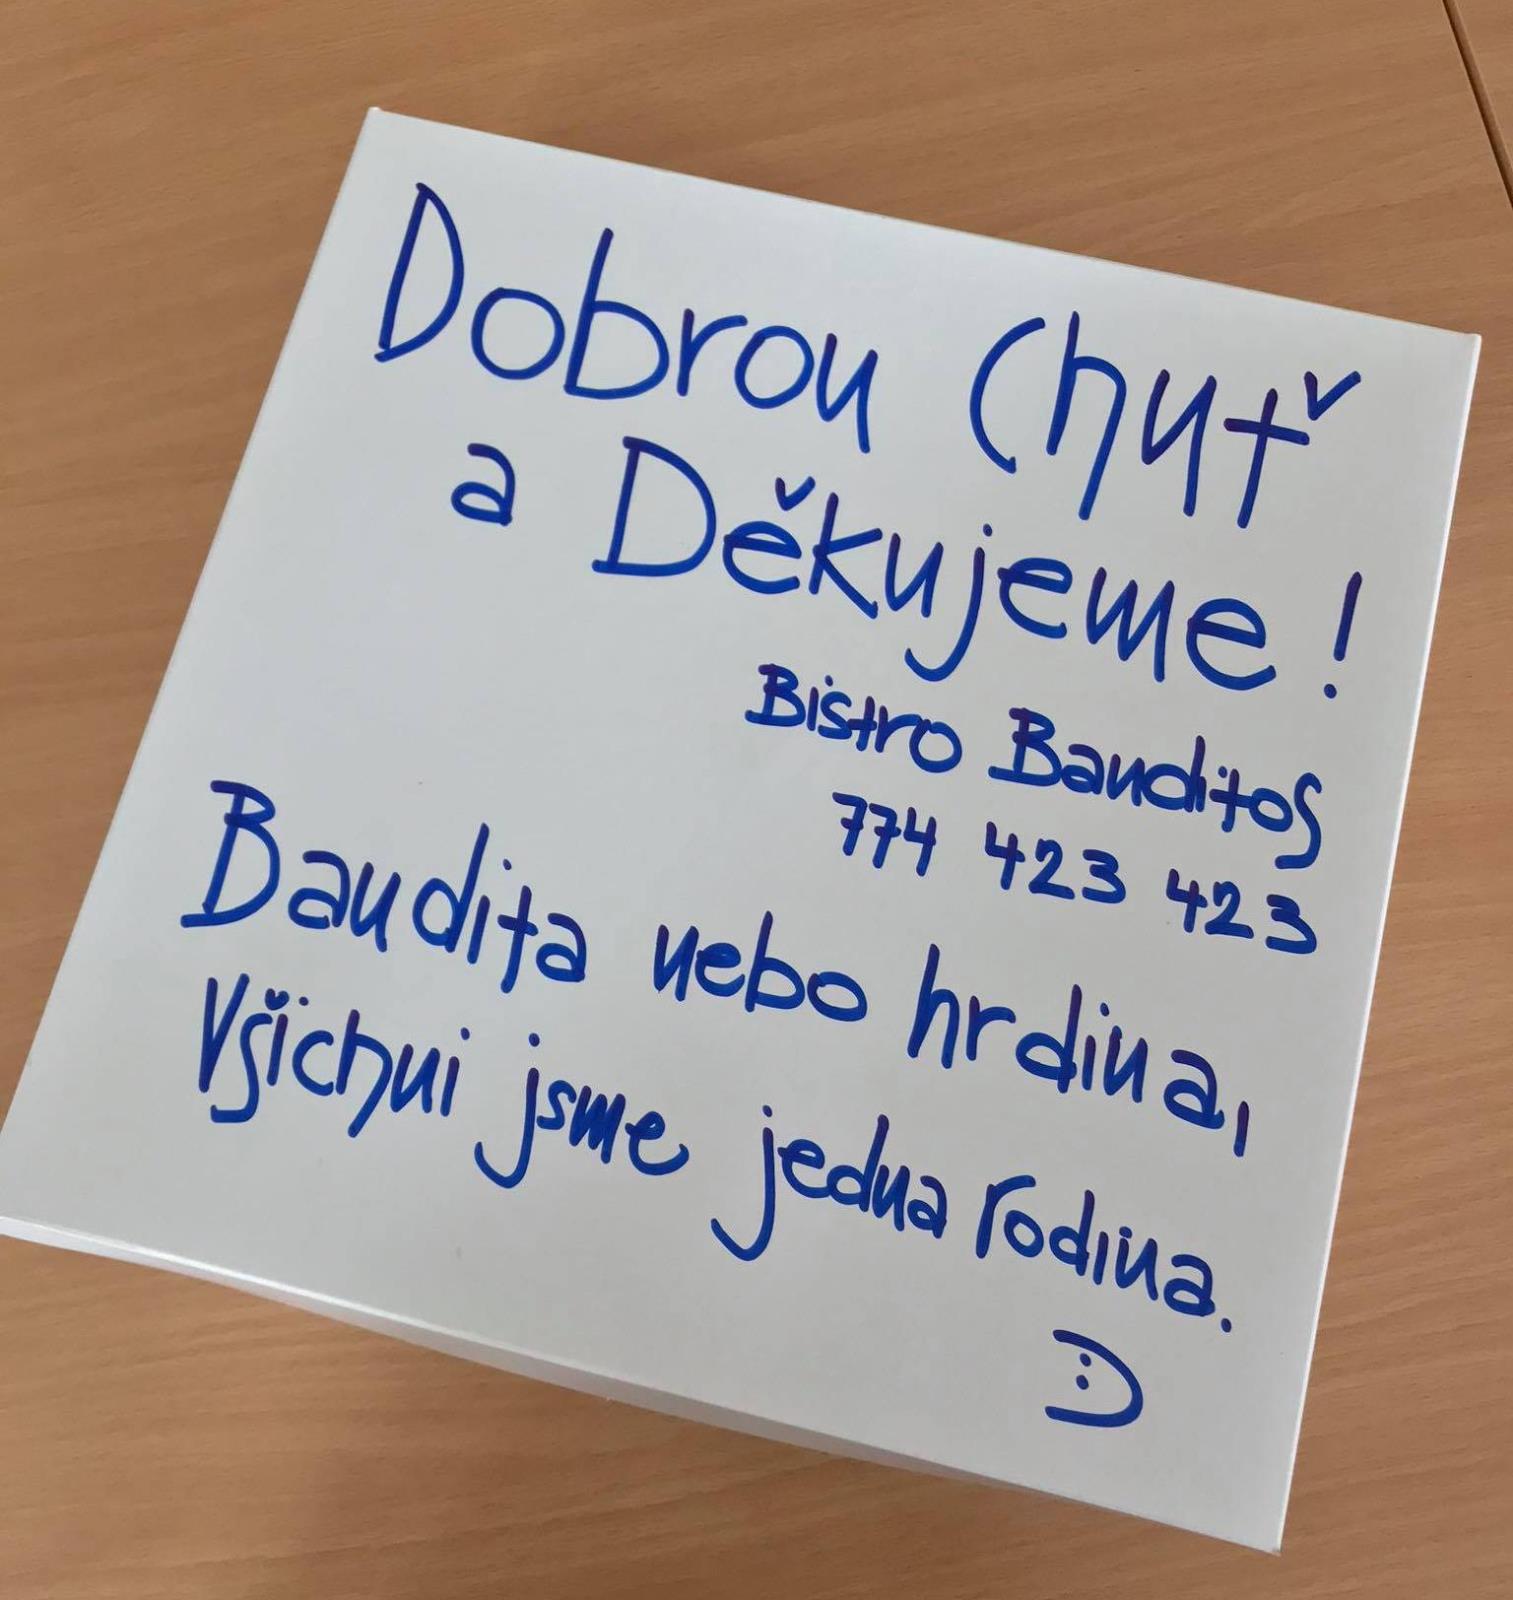 Dobrou Chuť
a Děkujeme!
Bistro Banditos
774 423 423
Bandita nebo hrdina,
Všichni jsme jedna rodina.
:D